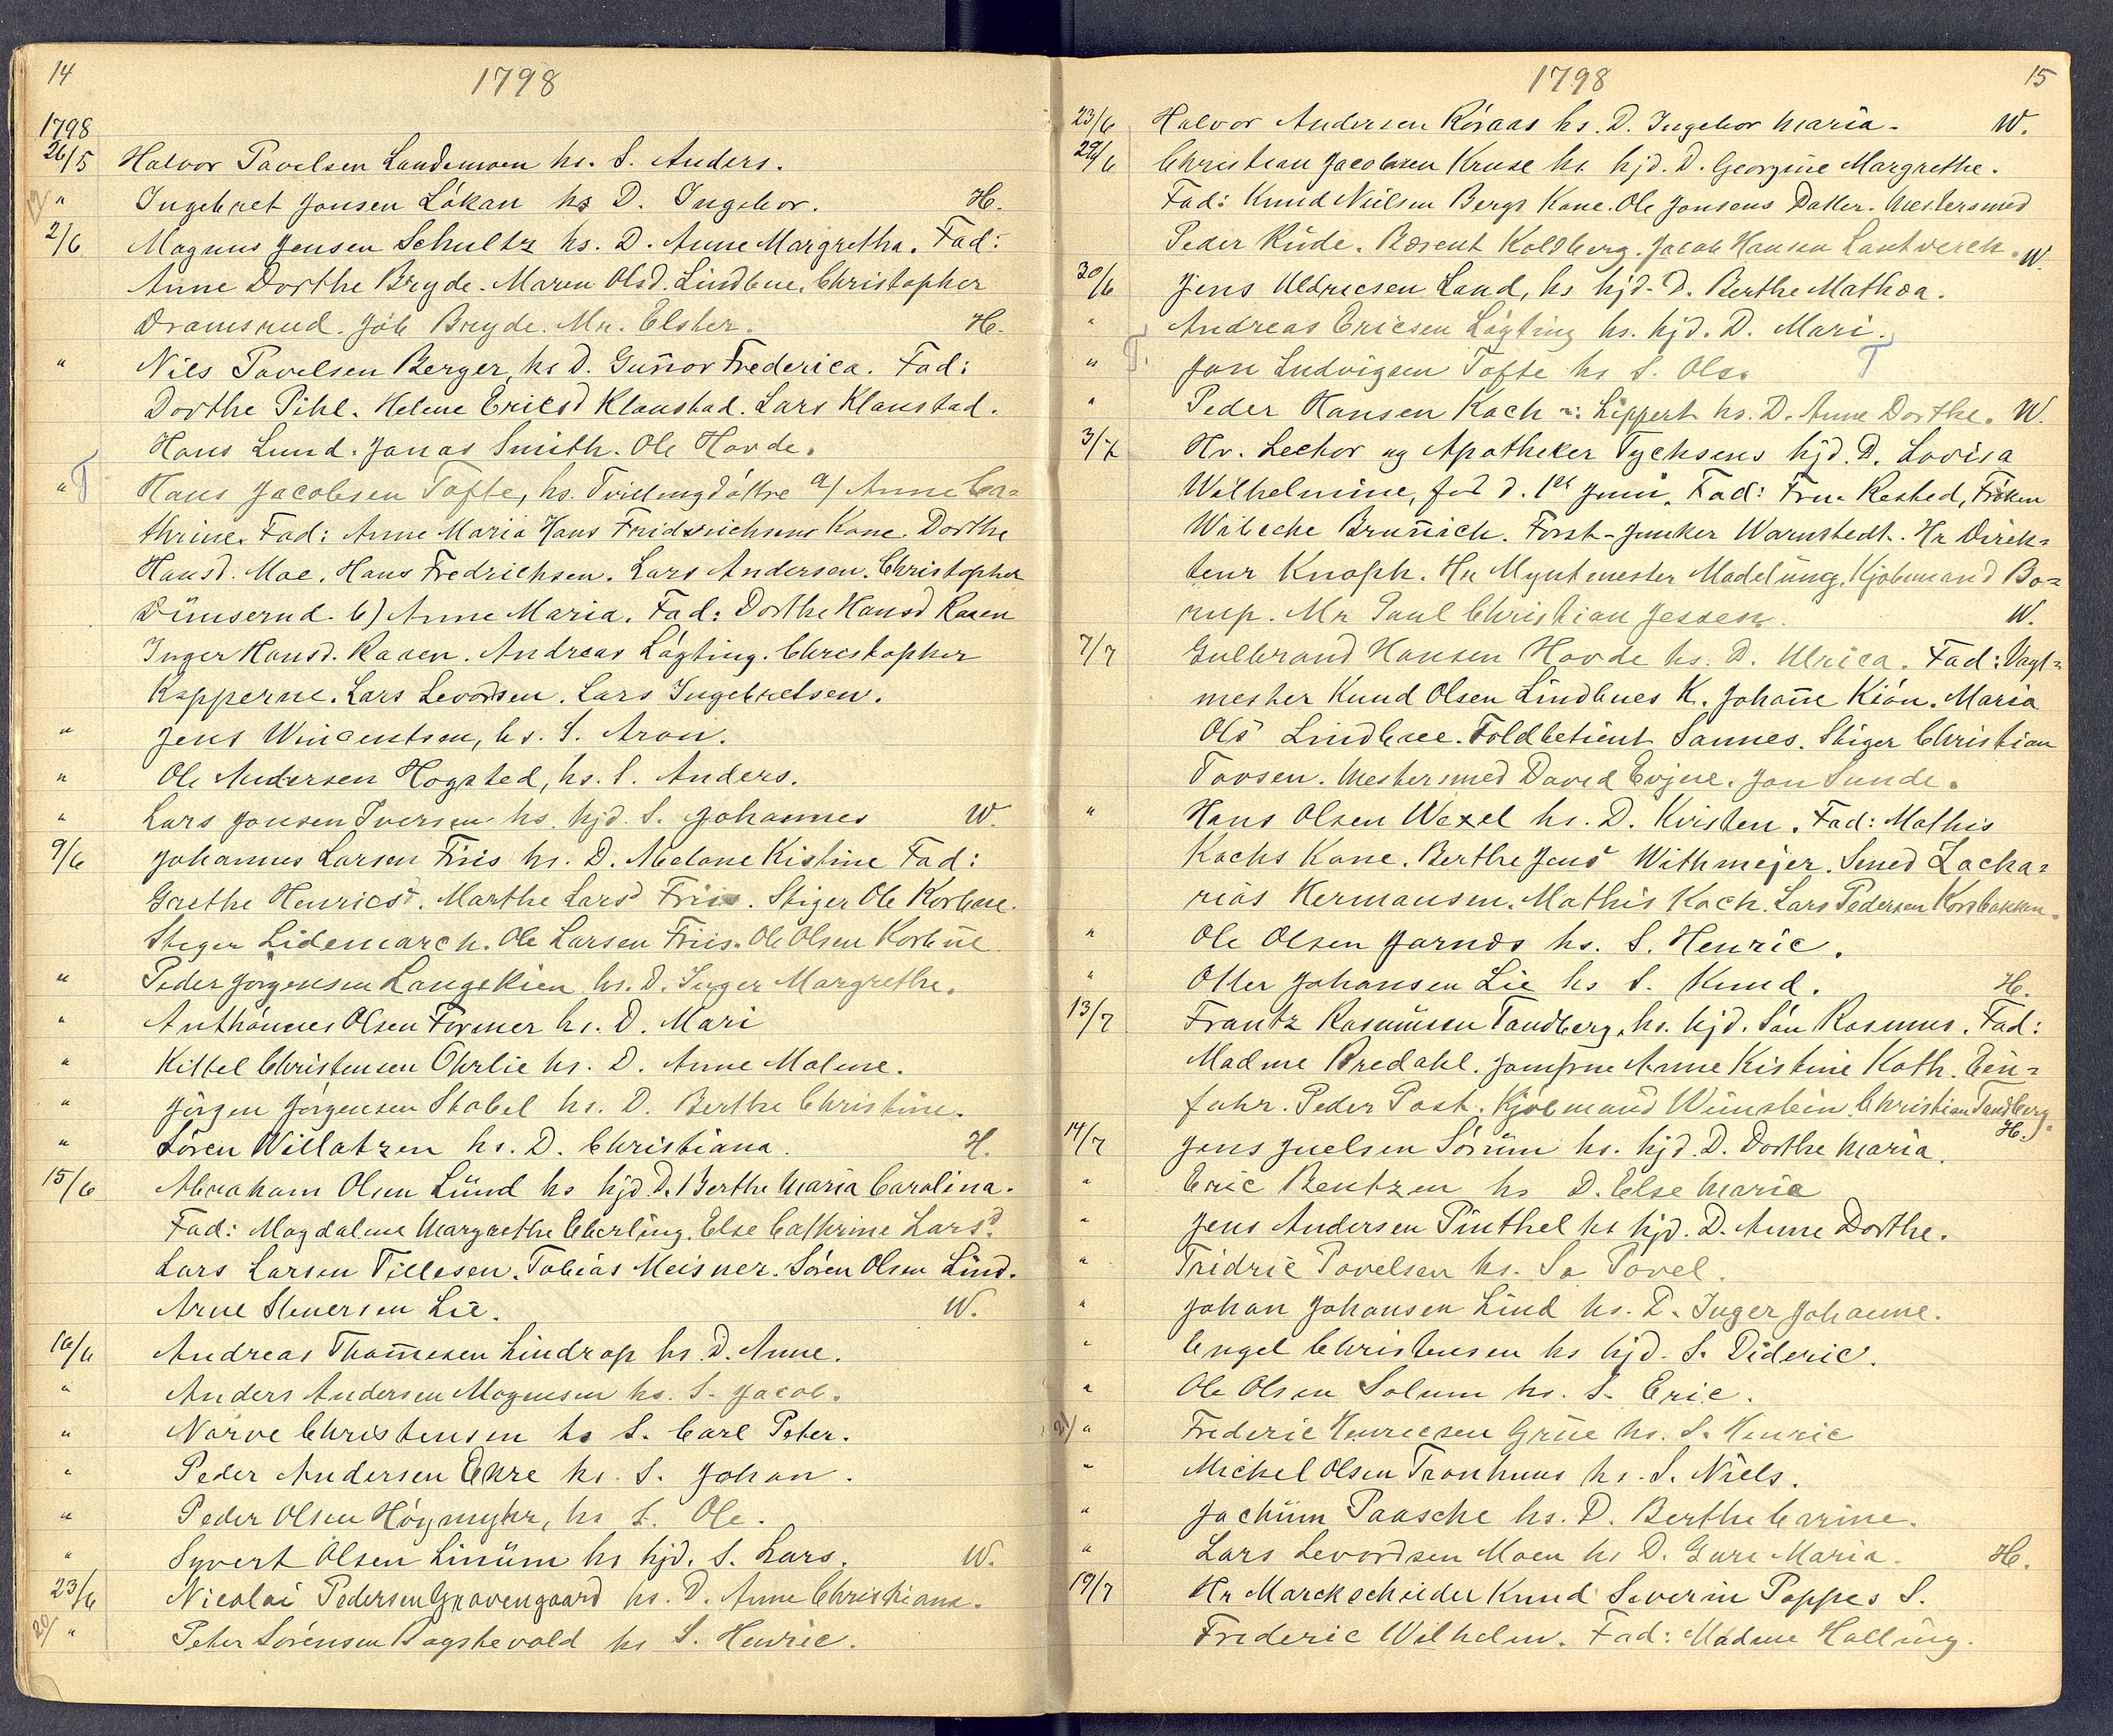 14
1798
1798
26/5 Halvor Pavelsen Landemoen hs. S. Anders.
" Ingebret Jonsen Lökan hs D. Ingebor. H.
2/6 Magnus Jensen Schultz hs. D. Anne Margretha. Fad:
Anne Dorthe Bryde. Maren Olsd. Lindbue. Christopher
Dramsrud. Job Bryde. Mr. Elster. H.
" Nils Pavelsen Berger, hs D. Guñor Frederica. Fad:
Dorthe Pihl. Helene Ericsd Klaustad. Lars Klaustad.
Hans Lund. Jonas Smith. Ole Hovde.
" T Hans Jacobsen Tofte, hs. Tvillingdöttre a/ Anne Ca=
thrine. Fad: Anne Maria Hans Fridrrichsens Kone. Dorthe
Hansd. Moe. Hans Fredrichsen. Lars Andersen. Christopher
Dümserud. b) Anne Maria. Fad: Dorthe Hansd Raaen
Inger Hansd. Raaen. Andreas Lögting. Christopher
Kopperne. Lars Levordsen. Lars Ingebretsen.
" Jens Wincentsen, hs. S. Aron.
" Ole Andersen Hogsted, hs. S. Anders.
" Lars Jonsen Iversen hs. hjd. S. Johannes W.
9/6 Johannes Larsen Friis hs. D. Abelone Kistine Fad:
Grethe Henricsd. Marthe Larsd Friis. Stiger Ole Korbøe.
Stiger Lidemarch. Ole Larsen Friis. Ole Olsen Korbøe
" Peder Jörgensen Langekien hs. D. Inger Margrethe.
" Anthönnes Olsen Former hs. D. Mari
" Kittel Christensen Ohrlie hs. D. Anne Malene.
" Jörgen Jörgensen Stabel hs. D. Berthe Christine.
" Sören Willatzen hs. D. Christiana. H.
15/6 Abraham Olsen Lünd hs hjd D. Berthe Maria Carolina.
Fad: Magdalene Margrethe Eberling. Else Cathrine Larsd.
Lars Larsen Tillesen. Tobias Meisner. Sören Olsen Lind.
Arne Stenersen Lie. W.
16/6 Andreas Thom̃esen Lindrop hs. D. Anne.
" Anders Andersen Mogensen hs. S. Jacob.
" Narve Christensen hs S. Carl Peter.
" Peder Andersen Ekre hs. S. Johan.
" Peder Olsen Höymyhr, hs S. Ole.
" Syvert Olsen Linüm hs hjd. S. Lars. W.
23/6 Nicolai Pedersen Gravengaard hs. D. Anne Christiana.
20/ " Peter Sörensen Bagstevold hs S. Henric.
1798
15
23/6 Halvor Andersen Röraas hs. D. Ingebor Maria. W.
29/6 Christian Jacobsen Kruse hs hjd. D. Georgine Margrethe.
Fad: Knud Nielsen Bergs Kone. Ole Jonsens Datter. Mestersmed
Peder Rüde. Bøsent Koldberg. Jacob Hansen Lantverch. W.
30/6 Jens Uldricsen Land, hs hjd. D. Berthe Mathea.
" Andreas Ericsen Lögting hs. hjd. D. Mari.
" T. Jon Ludvigsen Tofte hs S. Ole. T
" Peder Hansen Koch v: Lippert hs. D. Anne Dorthe. W.
3/7 Hr. Lector og Apotheker Tychsens hjd. D. Lovisa
Wilhelmine, fød d. 1st Juni. Fad: Frue Rested, Fröken
Wibecke Bruñich. Forst-Junker Warnstedt. Hr Direk=
teur Knoph. Hr Myntmester Madelüng. Kjöbmand Bo=
rup. Mr Paul Christian Jessen. W.
7/7 Gulbrand Hansen Hovde hs. D. Ulrica. Fad: Vagt=
mester Knud Olsen Lindbues K. Johañe Kiön. Maria
Olsd Lindbue. Toldbetient Sannes. Stiger Christian
Tovsen. Mestersmed David Evjue. Jon Sunde.
" Hans Olsen Wexel hs. D. Kirsten. Fad: Mathis
Kochs Kone. Berthe Jensd Withmejer. Smed Zacha=
rias Hermansen. Mathis Koch. Lars Pedersen Korsbakken.
" Ole Olsen Jarnæs hs. S. Henric.
" Otter Johansen Lie hs S. Knud. H.
13/7 Frantz Rasmüssen Tandberg, hs. hjd. Sön Rasmus. Fad:
Madme Bredahl. Jomfrue Anne Kistine Kath. Ein=
fahr. Peder Post. Kjöbmand Wünstein. Christian Tandberg.
14/7 Jens Juelsen Sörüm hs. hjd. D. Dorthe Maria. H.
" Eric Bentzen hs D. Else Marie
" Jens Andersen Pinthel hs hjd. D. Anne Dorthe.
" Fridric Povelsen hs. Sø Povel.
" Johan Johansen Lind hs. D. Inger Johanne.
" Engel Christensen hs hjd. S. Dideric.
" Ole Olsen Solum hs. S. Eric.
21/ " Frederic Henricsen Grüe hs. S. Henric
" Michel Olsen Tronhuus hs. S. Niels.
" Jochüm Paasche hs. D. Berthe Carine.
" Lars Levordsen Moen hs D. Guri Maria. H.
19/7 Hr Marckscheider Knud Severin Poppes S.
Frederic Wilhelm. Fad: Madme Halling.